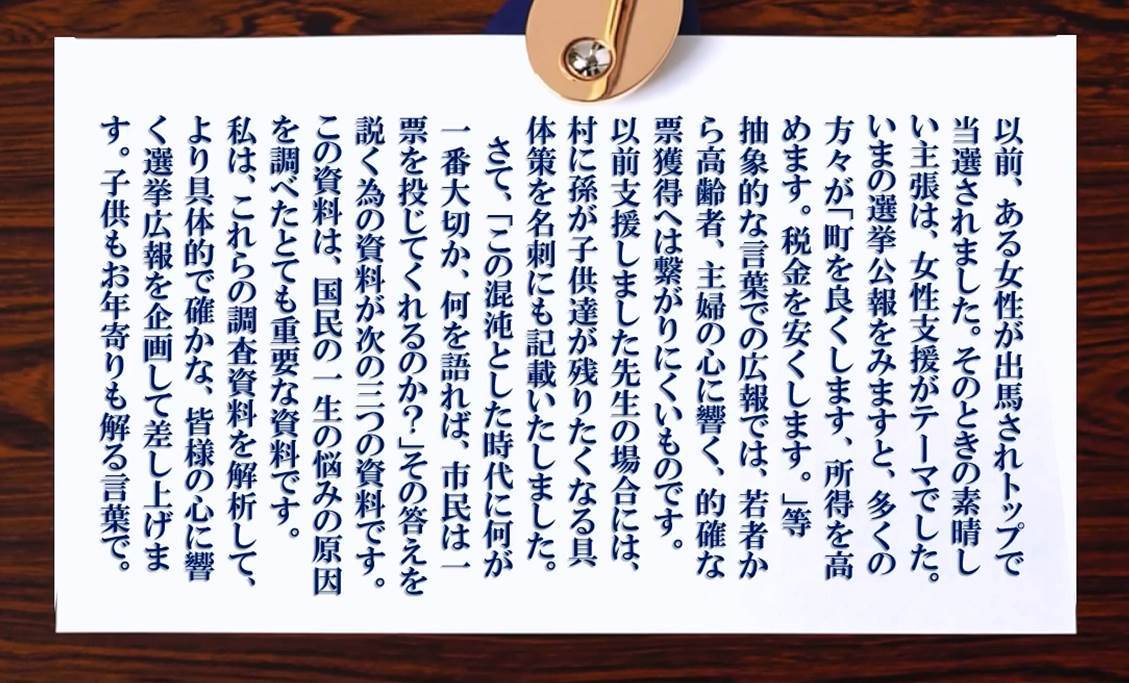 以前、ある女性が出馬されトップで
当選されました。そのときの素晴し
い主張は、女性支援がテーマでした。
いまの選挙公報をみますと、多くの
方々が「町を良くします、所得を高
めます。税金を安くします。」等
抽象的な言葉での広報では、若者か
ら高齢者、主婦の心に響く、的確な
票獲得へは繋がりにくいものです。
以前支援しました先生の場合には、
村に孫が子供達が残りたくなる具
体策を名刺にも記載いたしました。
さて、「この混沌とした時代に何が
一番大切か、何を語れば、市民は一
票を投じてくれるのか？」その答えを
説く為の資料が次の三つの資料です。
この資料は、国民の一生の悩みの原因
を調べたとても重要な資料です。
私は、これらの調査資料を解析して、
より具体的で確かな、皆様の心に響
く選挙広報を企画して差し上げま
す。子供もお年寄りも解る言葉で。